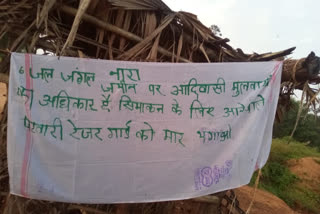 जल जंगल नारा
जमीन पर आदिवासी मुलवासी
का अधिकार हैं, सिमाकन के लिए आनेवाले
पटवारी रेंजर गार्ड को मार भगाओ